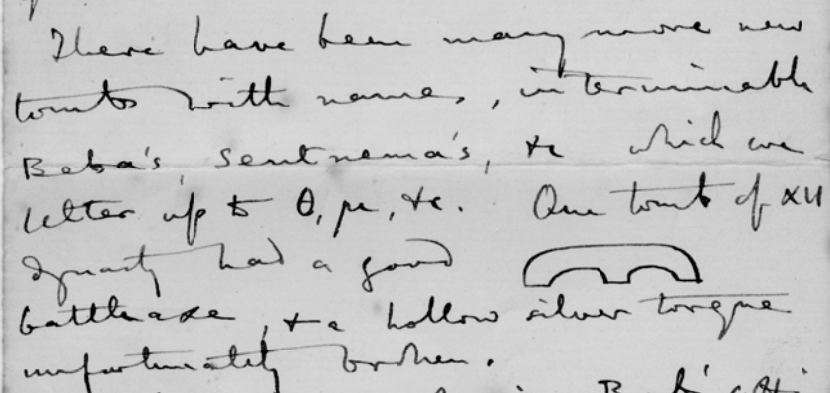 There have been many more new
tombs with names, interminable
Beba's, Sentnema's, &c which we
letter up to θ, μ, &c. One tomb of XII
dynasty had a good
battleaxe, & a hollow silver torque
unfortunately broken.